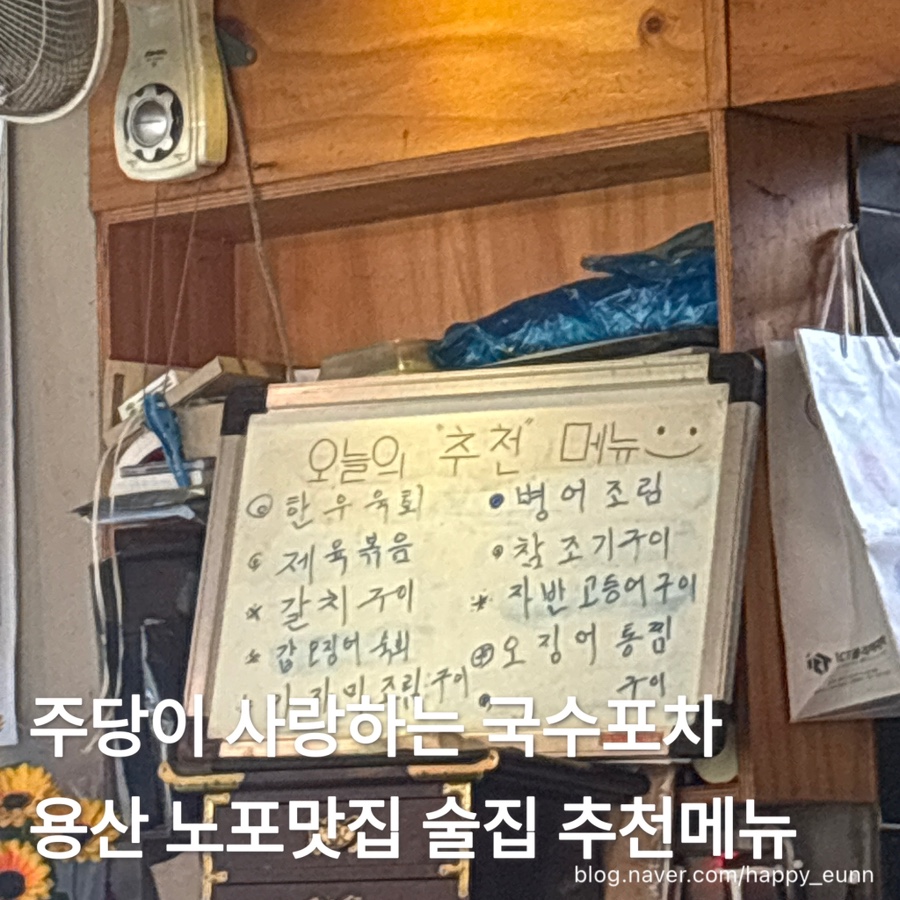 오늘의 "추천" 메뉴
한우육회
제육볶음
갈치구이
갑오징어 숙회
조림.구이
병어조림
참조기구이
자반고등어구이
오징어통찜
구이
주당이 사랑하는 국수포차
용산 노포맛집 술집 추천메뉴
blog.naver.com/happy_eunn